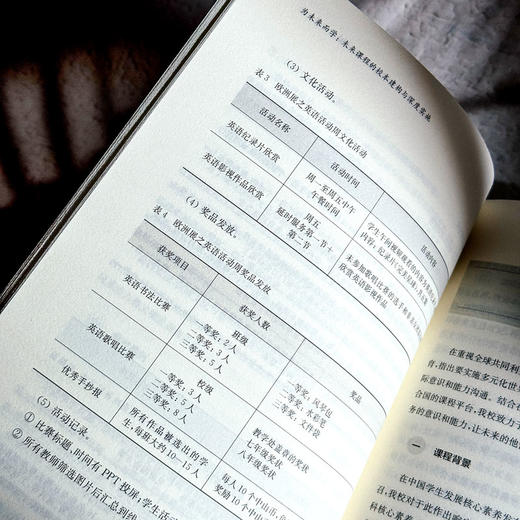 为未来而学：未来课程的校本建构与深度实施
（3）文化活动。
表 3 欧洲展之英语活动周文化活动
活动名称 活动时间 活动内容
英语纪录片欣赏 周一至周五中午
午餐时间
英语影视作品欣赏 周五
延时服务第一节＋
第二节
欣赏英语影视作品
（4）奖品发放。
表 4 欧洲展之英语活动周奖品发放
获奖项目 获奖人数 奖品
英语书法比赛 班级
一等奖：2 人
二等奖：3 人
三等奖：5 人
英语歌唱比赛 校级
一等奖：3 人
二等奖：5 人
三等奖：8 人
一等奖：风琴包
二等奖：水彩笔
三等奖：文件袋
优秀手抄报 所有作品被选出的学
生：每班大约 10－15 人
教学处盖章的奖状
七年级奖状
八年级奖状
每人 10 个中山币，
奖励 10 个中山币
（5）活动记录。
① 比赛标题、时间有 PPT 投屏；学生活动
② 所有教师筛选图片后汇总到线
在重视全球共同利
育，指出要实施多元化世
标意识和能力沟通。结合
合国的课程平台，我校致力于
务的意识和能力，让未来的他
一 课程背景
在中国学生发展核心素养发
科核心素养，我校对此作出